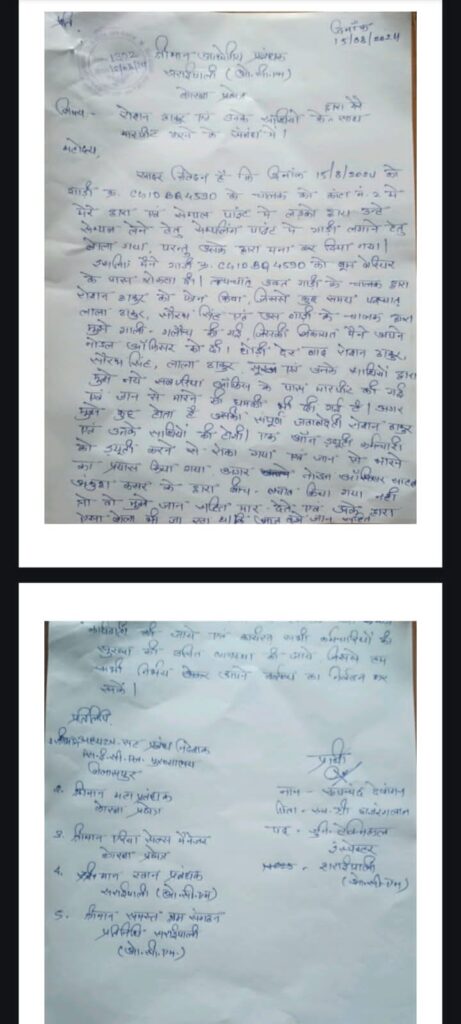 प्रति,
दिनांक
15/08/2024
1302
15/08/24
श्रीमान उपक्षेत्रीय प्रबंधक
सराईपाली (ओ.सी.एम)
कोरबा क्षेत्र
विषय:- रोशन ठाकुर एवं उनके साथियों के द्वारा मेरे साथ
मारपीट करने के संबंध में।
महोदय,
सादर निवेदन है कि दिनांक 15/8/2024 को
गाड़ी क्र. CG10BQ4590 के चालक को कांटा नं. 2 में
मेरे द्वारा एवं सेम्पल पाइंट में लड़को द्वारा उन्हे
सेम्पल लेने हेतु सेम्पलिंग पाइंट पे गाड़ी लगाने हेतु
बोला गया, परन्तु उनके द्वारा मना कर दिया गया।
इसलिए मैंने गाड़ी क्र. CG10BQ4590 को बूम बेरियर
के पास रोका था। तत्पश्चात उक्त गाड़ी के चालक द्वारा
रोशन ठाकुर को फोन किया, जिससे कुछ समय पश्चात
लाला ठाकुर, सौरभ सिंह एवं उस गाड़ी के चालक द्वारा
मुझे गाली-गलौच की गई जिसकी शिकायत मैंने अपने
नोडल ऑफिसर को दी। थोड़ी देर बाद रोशन ठाकुर,
सौरभ सिंह, लाला ठाकुर, एवं उनके साथियों द्वारा
मुझे नये सब एरिया ऑफिस के पास मारपीट की गई
एवं जान से मारने की धमकी भी दी गई है। अगर
मुझे कुछ होता है उसकी संपूर्ण जवाबदारी रोशन ठाकुर
एवं उनके साथियों की होगी। एक ऑन ड्यूटी कर्मचारी
को ड्यूटी करने से रोका गया एवं जान से मारने
का प्रयास किया गया अगर नोडल ऑफिसर साहब
के द्वारा बीच-बचाव किया गया नहीं
तो वो मुझे जान सहित मार देते एवं उनके द्वारा
ऐसा बोला भी जा रहा था कि जान सहित
कार्यवाही की जाये एवं कार्यरत सभी कर्मचारियों की
सुरक्षा की उचित व्यवस्था की जाये जिससे हम
सभी निर्भय होकर अपने कर्तव्य का निर्वहन कर
सकें।
प्रतिलिपि
1. श्रीमान अध्यक्ष सह प्रबंध निदेशक
एस.ई.सी.एल. मुख्यालय
बिलासपुर
2. श्रीमान महाप्रबंधक
कोरबा क्षेत्र
3. श्रीमान एरिया सेल्स मैनेजर
कोरबा क्षेत्र
4. श्रीमान खान प्रबंधक
सराईपाली (ओ.सी.एम)
5. श्रीमान समस्त श्रम संगठन
प्रतिनिधि सराईपाली
(ओ.सी.एम.)
प्रार्थी
नाम - देवांगन
पिता -
पद -
इंस्पेक्टर
सराईपाली
(ओ.सी.एम)